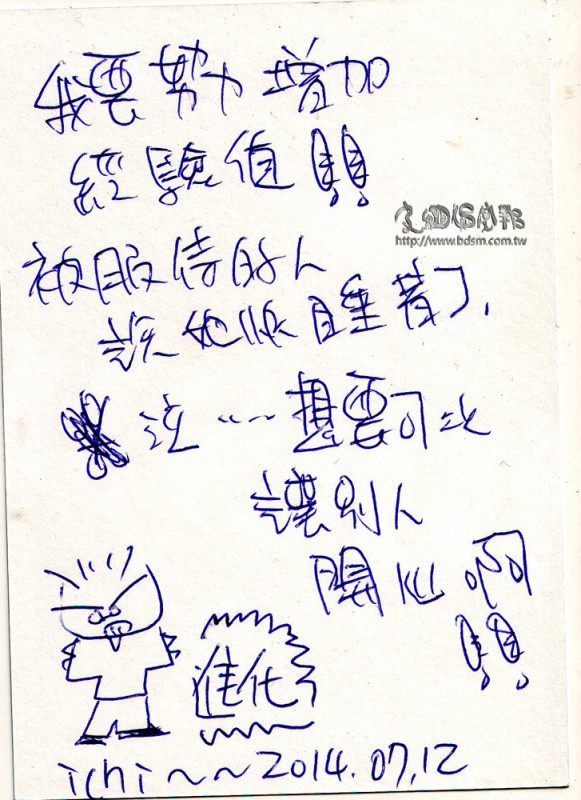 我要努力增加
經驗值朋
http://www.bdsm.com.tw
被服侍的人
說他快睡著了,
這……想要可以
讓別人
開心啊
進化
ichi~~2014.07.12